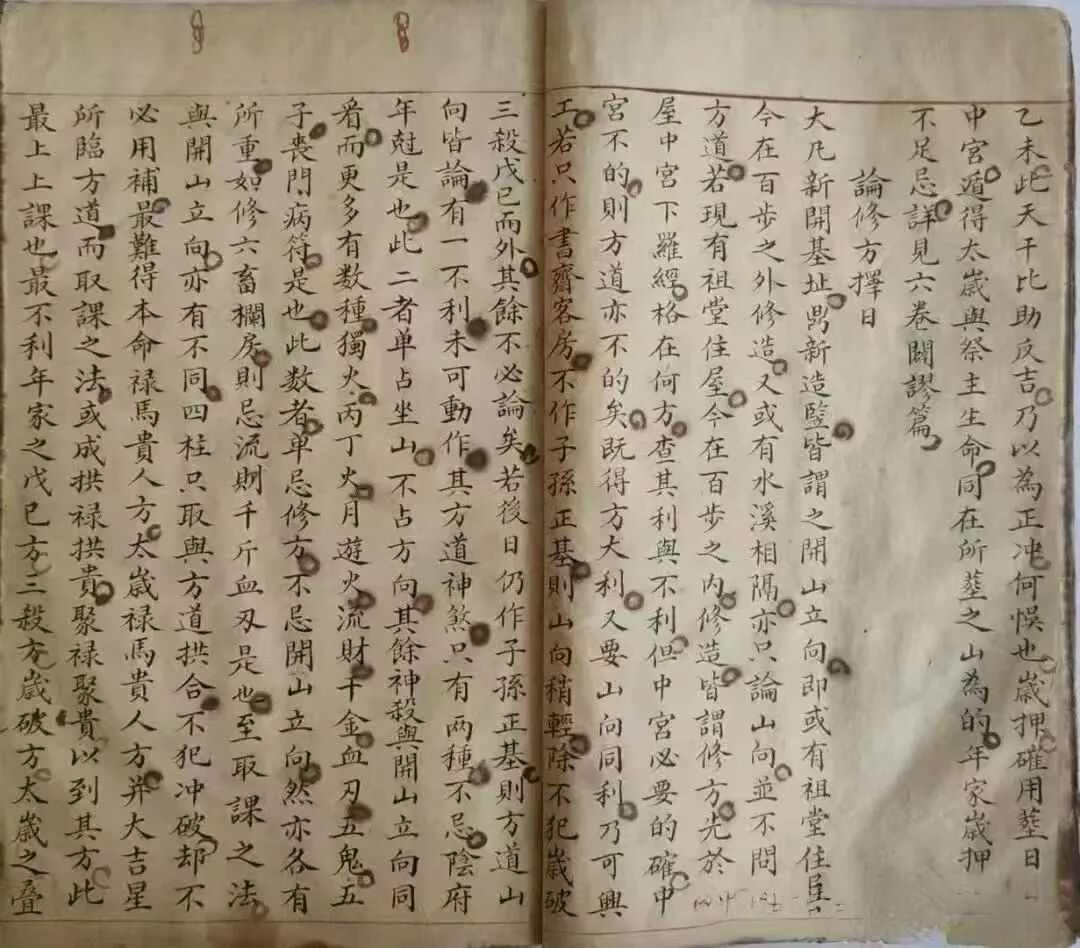 乙未此天干比助反吉乃以為正冲何悞也歲押確用塟日
中宮遁得太歲與祭主生命同在所塟之山為的年家歲押
不足忌詳見六卷闢謬篇
論修方擇日
大凡新開基址啚新造豎皆謂之開山立向即或有祖堂住屋
今在百步之外修造又或有水溪相隔亦只論山向並不問
方道若現有祖堂住屋今在百步之內修造皆謂修方先於
屋中宮下羅經格在何方查其利與不利但中宮必要的確中
宮不的則方道亦不的矣既得方大利又要山向同利乃可興
工若只作書齋客房不作子孫正基則山向稍輕除不犯歲破
三殺戊已而外其餘不必論矣若後日仍作子孫正基則方道山
向皆論有一不利未可動作其方道神煞只有两種不忌陰府
年尅是也此二者单占坐山不占方向其餘神殺與開山立向同
看而更多有数種獨火丙丁火月遊火流財千金血刃五鬼五
子喪門病符是也此数者单忌修方不忌開山立向然亦各有
所重如修六畜欄房則忌流財千斤血刃是也至取課之法
與開山立向亦有不同四柱只取與方道拱合不犯冲破却不
必用補最難得本命禄馬貴人方太歲禄馬貴人方并大吉星
所臨方道而取課之法或成拱禄拱貴聚禄聚貴以到其方此
最上上課也最不利年家之戊已方三殺方歲破方太歲之疊